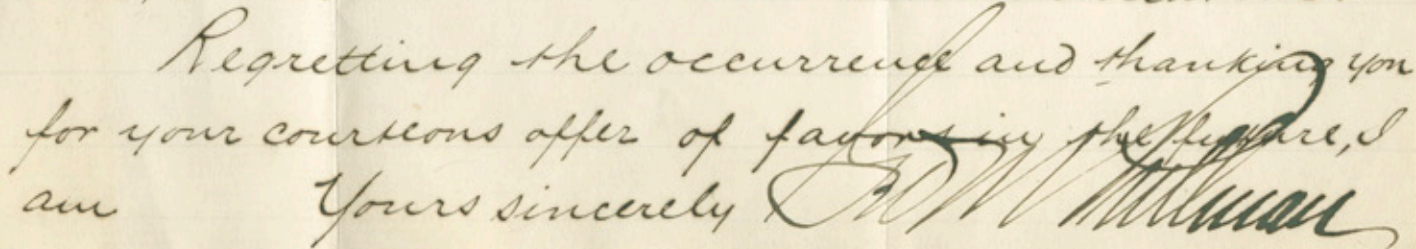 Regretting the occurrence and thanking you
for your courteous offer of favors in the future, I
am Yours sincerely